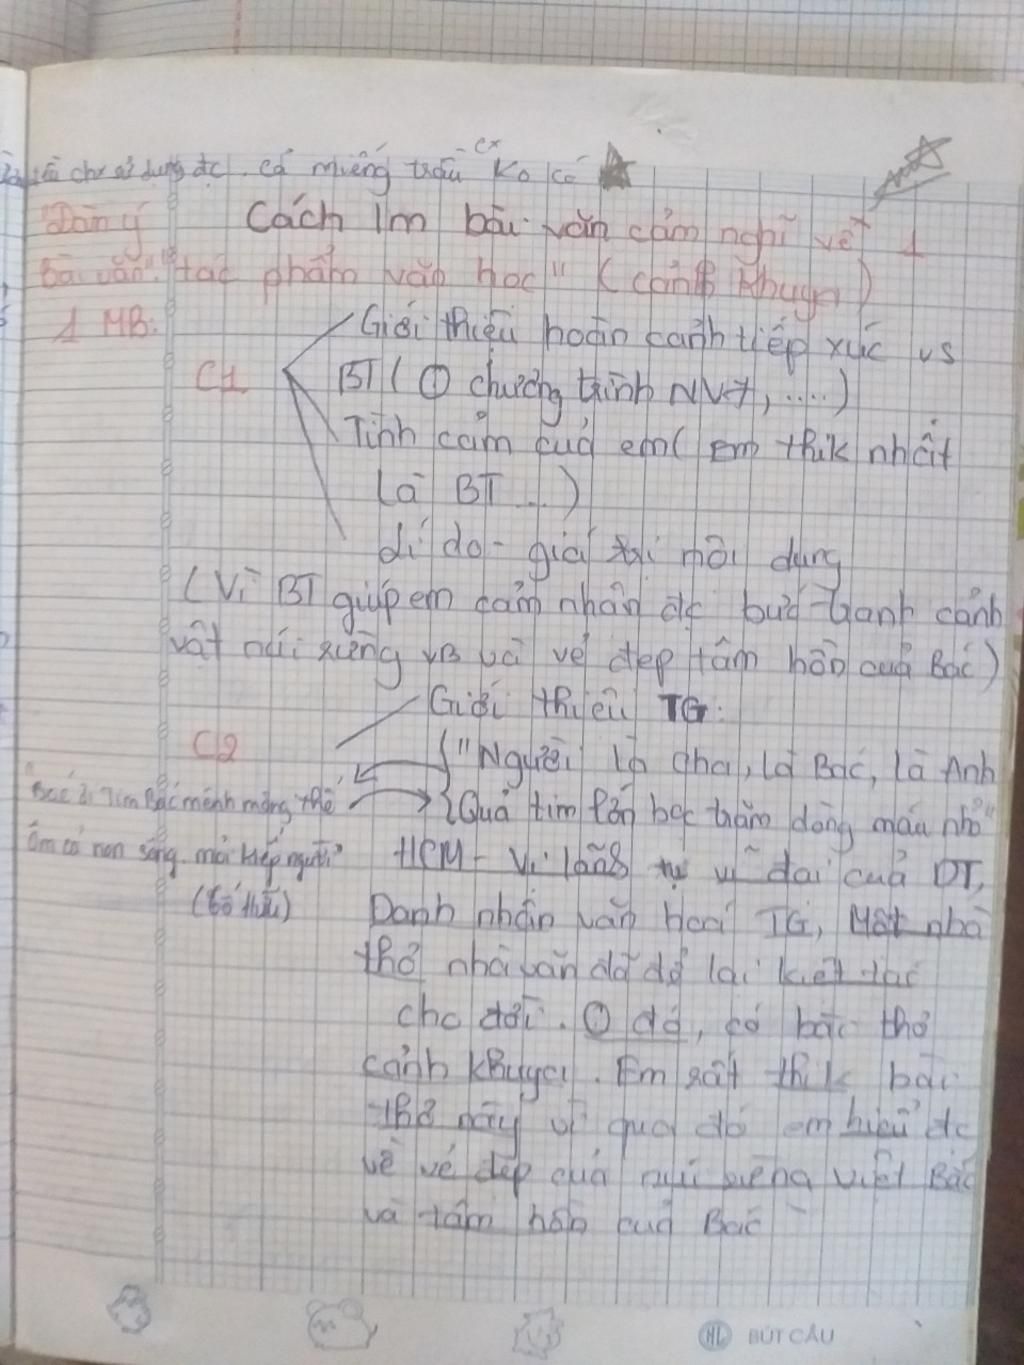 chx sử dụng đc. cả miếng trầu cx ko có
Dàn ý Cách lm bài văn cảm nghĩ về 1
bài văn "tác phẩm văn học" (cảnh khuya)
1 MB:
Giới thiệu hoàn cảnh tiếp xúc vs
C1 BT ( chương trình NV7, ....)
Tình cảm của em ( Em thik nhất
là BT ...)
lí do - giá trị nội dung
(Vì BT giúp em cảm nhận đc bức tranh cảnh
vật núi rừng VB và vẻ đẹp tâm hồn của Bác)
Giới thiệu TG:
C2
"Người là cha, là Bác, là Anh
Quả tim lớn bọc trăm dòng máu nhỏ"
"Bác ơi Tim Bác mênh mông thế
Ôm cả non sông mọi kiếp người"
(Tố Hữu)
HCM - Vị lãnh tụ vĩ đại của DT,
Danh nhân văn hoá TG, Một nhà
thơ nhà văn đã để lại kiệt tác
cho đời. đó, có bài thơ
cảnh khuya. Em rất thik bài
thơ này vì qua đó em hiểu đc
về vẻ đẹp của núi rừng Việt Bắc
và tâm hồn của Bác
HL BÚT CÂU